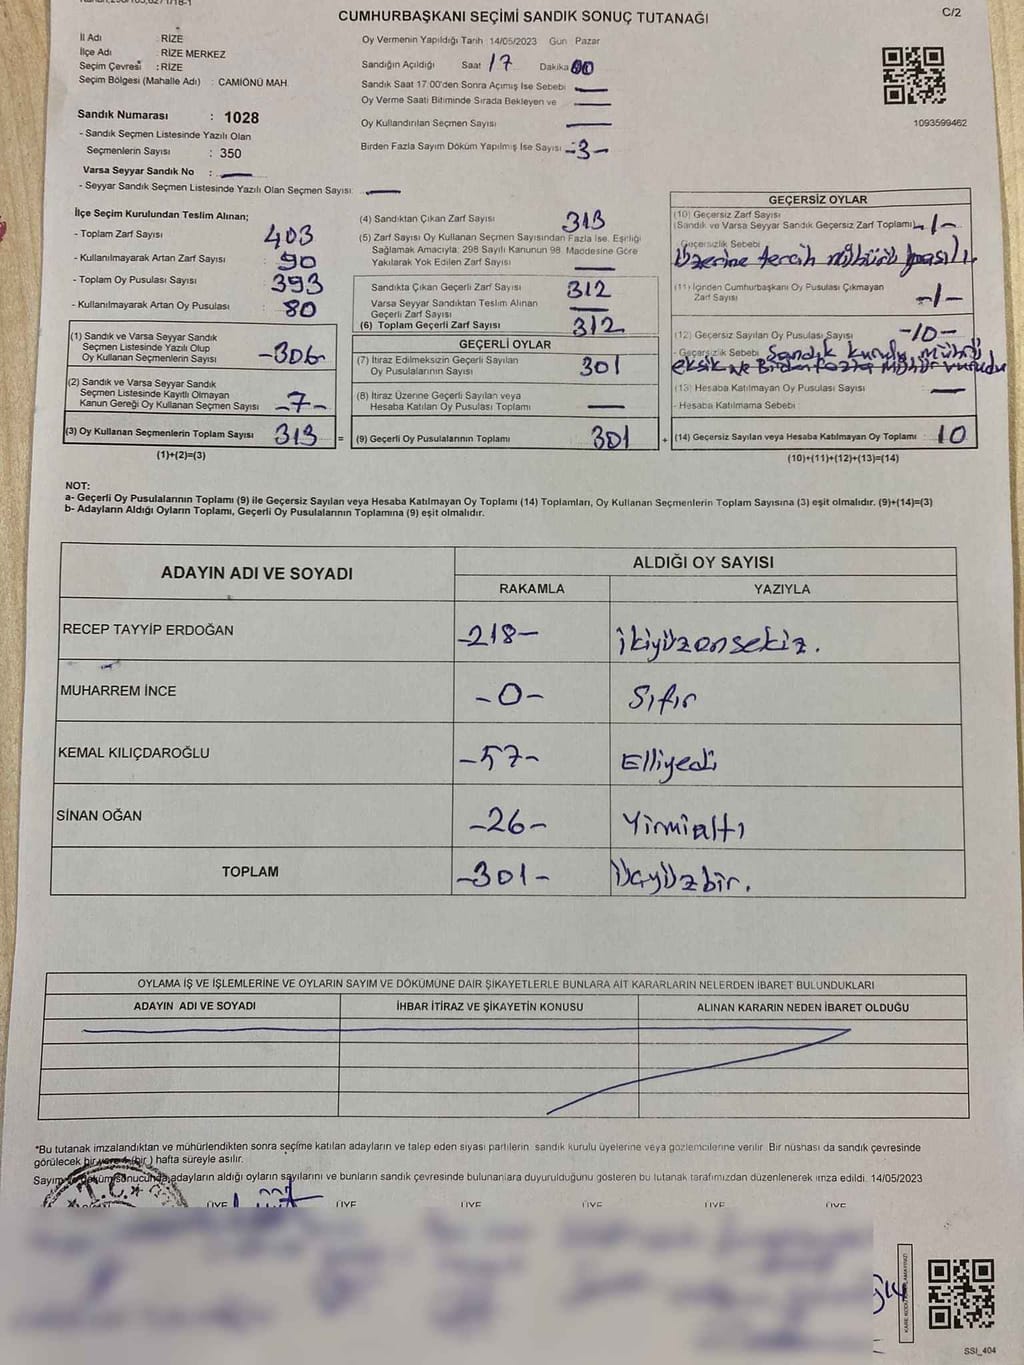 C/2
CUMHURBAŞKANI SEÇİMİ SANDIK SONUÇ TUTANAĞI
İl Adı : RİZE
İlçe Adı : RİZE MERKEZ
Seçim Çevresi : RİZE
Seçim Bölgesi (Mahalle Adı) : CAMİÖNÜ MAH.
Sandık Numarası : 1028
- Sandık Seçmen Listesinde Yazılı Olan
Seçmenlerin Sayısı : 350
Varsa Seyyar Sandık No :
- Seyyar Sandık Seçmen Listesinde Yazılı Olan Seçmen Sayısı:
Oy Vermenin Yapıldığı Tarih 14/05/2023 Gün Pazar
Sandığın Açıldığı Saat 17 Dakika 00
Sandık Saat 17:00'den Sonra Açımış İse Sebebi
Oy Verme Saati Bitiminde Sırada Bekleyen ve
Oy Kullandırılan Seçmen Sayısı
Birden Fazla Sayım Döküm Yapılmış İse Sayısı -3-
1093599462
İlçe Seçim Kurulundan Teslim Alınan;
- Toplam Zarf Sayısı 403
- Kullanılmayarak Artan Zarf Sayısı : 90
- Toplam Oy Pusulası Sayısı : 393
- Kullanılmayarak Artan Oy Pusulası : 80
(1) Sandık ve Varsa Seyyar Sandık
Seçmen Listesinde Yazılı Olup
Oy Kullanan Seçmenlerin Sayısı -306-
(2) Sandık ve Varsa Seyyar Sandık
Seçmen Listesinde Kayıtlı Olmayan
Kanun Gereği Oy Kullanan Seçmen Sayısı -7-
(3) Oy Kullanan Seçmenlerin Toplam Sayısı 313 =
(1)+(2)=(3)
(4) Sandıktan Çıkan Zarf Sayısı 313
(5) Zarf Sayısı Oy Kullanan Seçmen Sayısından Fazla İse, Eşitliği
Sağlamak Amacıyla; 298 Sayılı Kanunun 98. Maddesine Göre
Yakılarak Yok Edilen Zarf Sayısı
Sandıkta Çıkan Geçerli Zarf Sayısı 312
Varsa Seyyar Sandıktan Teslim Alınan
Geçerli Zarf Sayısı
(6) Toplam Geçerli Zarf Sayısı 312
GEÇERLİ OYLAR
(7) İtiraz Edilmeksizin Geçerli Sayılan
Oy Pusulalarının Sayısı 301
(8) İtiraz Üzerine Geçerli Sayılan veya
Hesaba Katılan Oy Pusulası Toplamı
(9) Geçerli Oy Pusulalarının Toplamı 301 +
GEÇERSİZ OYLAR
(10) Geçersiz Zarf Sayısı
(Sandık ve Varsa Seyyar Sandık Geçersiz Zarf Toplamı) -1-
- Geçersizlik Sebebi
üzerine tercih mührü basılı
(11) İçinden Cumhurbaşkanı Oy Pusulası Çıkmayan
Zarf Sayısı -1-
(12) Geçersiz Sayılan Oy Pusulası Sayısı -10-
- Geçersizlik Sebebi Sandık kurulu mührü
eksik ve Birden fazla mühür vuruldu
(13) Hesaba Katılmayan Oy Pusulası Sayısı
- Hesaba Katılmama Sebebi :
(14) Geçersiz Sayılan veya Hesaba Katılmayan Oy Toplamı : 10
(10)+(11)+(12)+(13)=(14)
NOT:
a- Geçerli Oy Pusulalarının Toplamı (9) ile Geçersiz Sayılan veya Hesaba Katılmayan Oy Toplamı (14) Toplamları, Oy Kullanan Seçmenlerin Toplam Sayısına (3) eşit olmalıdır. (9)+(14)=(3)
b- Adayların Aldığı Oyların Toplamı, Geçerli Oy Pusulalarının Toplamına (9) eşit olmalıdır.
ADAYIN ADI VE SOYADI
ALDIĞI OY SAYISI
RAKAMLA YAZIYLA
RECEP TAYYİP ERDOĞAN -218- ikiyüzonsekiz.
MUHARREM İNCE -0- Sıfır
KEMAL KILIÇDAROĞLU -57- Elliyedi
SİNAN OĞAN -26- Yirmialtı
TOPLAM -301- üçyüzbir.
OYLAMA İŞ VE İŞLEMLERİNE VE OYLARIN SAYIM VE DÖKÜMÜNE DAİR ŞİKAYETLERLE BUNLARA AİT KARARLARIN NELERDEN İBARET BULUNDUKLARI
ADAYIN ADI VE SOYADI İHBAR İTİRAZ VE ŞİKAYETİN KONUSU ALINAN KARARIN NEDEN İBARET OLDUĞU
*Bu tutanak imzalandıktan ve mühürlendikten sonra seçime katılan adayların ve talep eden siyasi partilerin sandık kurulu üyelerine veya gözlemcilerine verilir. Bir nüshası da sandık çevresinde
görülecek bir yere 1 (bir ) hafta süreyle asılır.
Sayım ve döküm sonucunda adayların aldığı oyların sayılarını ve bunların sandık çevresinde bulunanlara duyurulduğunu gösteren bu tutanak tarafımızdan düzenlenerek imza edildi. 14/05/2023
T.C.
ÜYE ÜYE ÜYE ÜYE ÜYE ÜYE
SSI_404